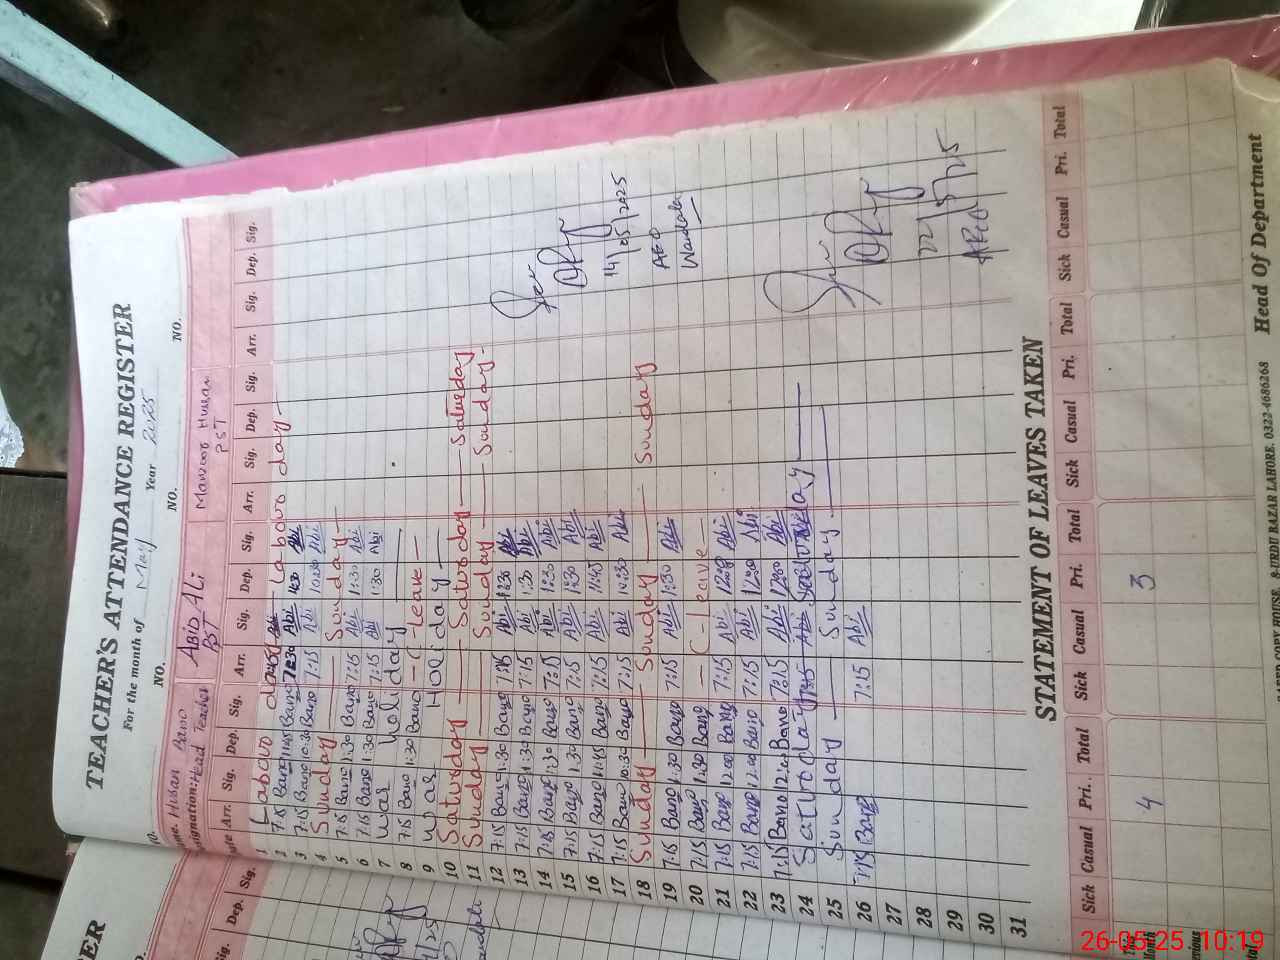 TEACHER'S ATTENDANCE REGISTER
For the month of May Year 2025
NO. NO. NO.
Husan Bano ABID ALI Manzoor Hussan
signation: Head Teacher PST PST
Arr. Sig. Dep. Sig. Arr. Sig. Dep. Sig. Arr. Sig. Dep. Sig. Arr. Sig. Dep. Sig.
1 Labour day Labour day
2 7:15 Bano 11:45 Bano 7:30 Abi Abi
3 7:15 Bano 10:30 Bano 7:15 Abi 10:30 Abi
4 Sunday Sunday
5 7:15 Bano 1:30 Bano 7:15 Abi 1:30 Abi
6 7:15 Bano 1:30 Bano 7:15 Abi 1:30 Abi
7 war holiday
8 7:15 Bano 1:30 Bano C-leave
9 war Holiday
10 Saturday Saturday Saturday
11 Sunday Sunday Sunday
12 7:15 Bano 1:30 Bano 7:15 Abi 1:30 Abi
13 7:15 Bano 1:30 Bano 7:15 Abi 1:30 Abi
14 7:15 Bano 1:30 Bano 7:15 Abi 1:30 Abi
15 7:15 Bano 1:30 Bano 7:15 Abi 1:30 Abi
16 7:15 Bano 11:45 Bano 7:15 Abi 11:45 Abi
17 7:15 Bano 10:30 Bano 7:15 Abi 10:30 Abi
18 Sunday Sunday Sunday
19 7:15 Bano 1:30 Bano 7:15 Abi 1:30 Abi
20 7:15 Bano 1:30 Bano C-leave
21 7:15 Bano 12:00 Bano 7:15 Abi 12:00 Abi
22 7:15 Bano 12:00 Bano 7:15 Abi 12:00 Abi
23 7:15 Bano 12:00 Bano 7:15 Abi 12:00 Abi
24 Saturday
25 Sunday Sunday
26 7:15 Bano 7:15 Abi
27
28
29
30
31
14/05/2025
AEO
Wandala
22/5/25
STATEMENT OF LEAVES TAKEN
Sick Casual Pri. Total Sick Casual Pri. Total Sick Casual Pri. Total Sick Casual Pri. Total
4 3
Head Of Department
URDU BAZAR LAHORE. 0322-4686268
Dep. Sig.
26-05-25 10:19